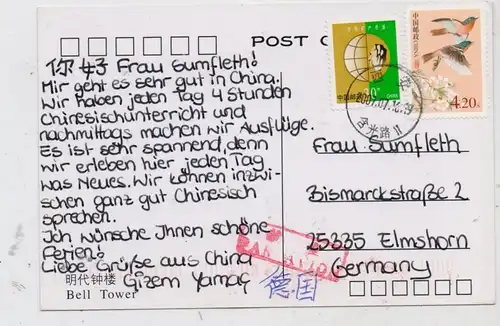 POST C
你好 Frau Sumfleth!
Mir geht es sehr gut in China.
Wir haben jeden Tag 4 Stunden
Chinesischunterricht und
nachmittags machen wir Ausflüge.
Es ist sehr spannend, denn
wir erleben hier jeden Tag
was Neues. Wir können inzwi-
schen ganz gut Chinesisch
sprechen.
Ich wünsche Ihnen schöne
Ferien!
Liebe Grüße aus China
Gizem Yamaç
明代钟楼
Bell Tower
中国邮政
CHINA
4.20元
中国邮政
CHINA
Frau Sumfleth
Bismarckstraße 2
25335 Elmshorn
Germany
德国